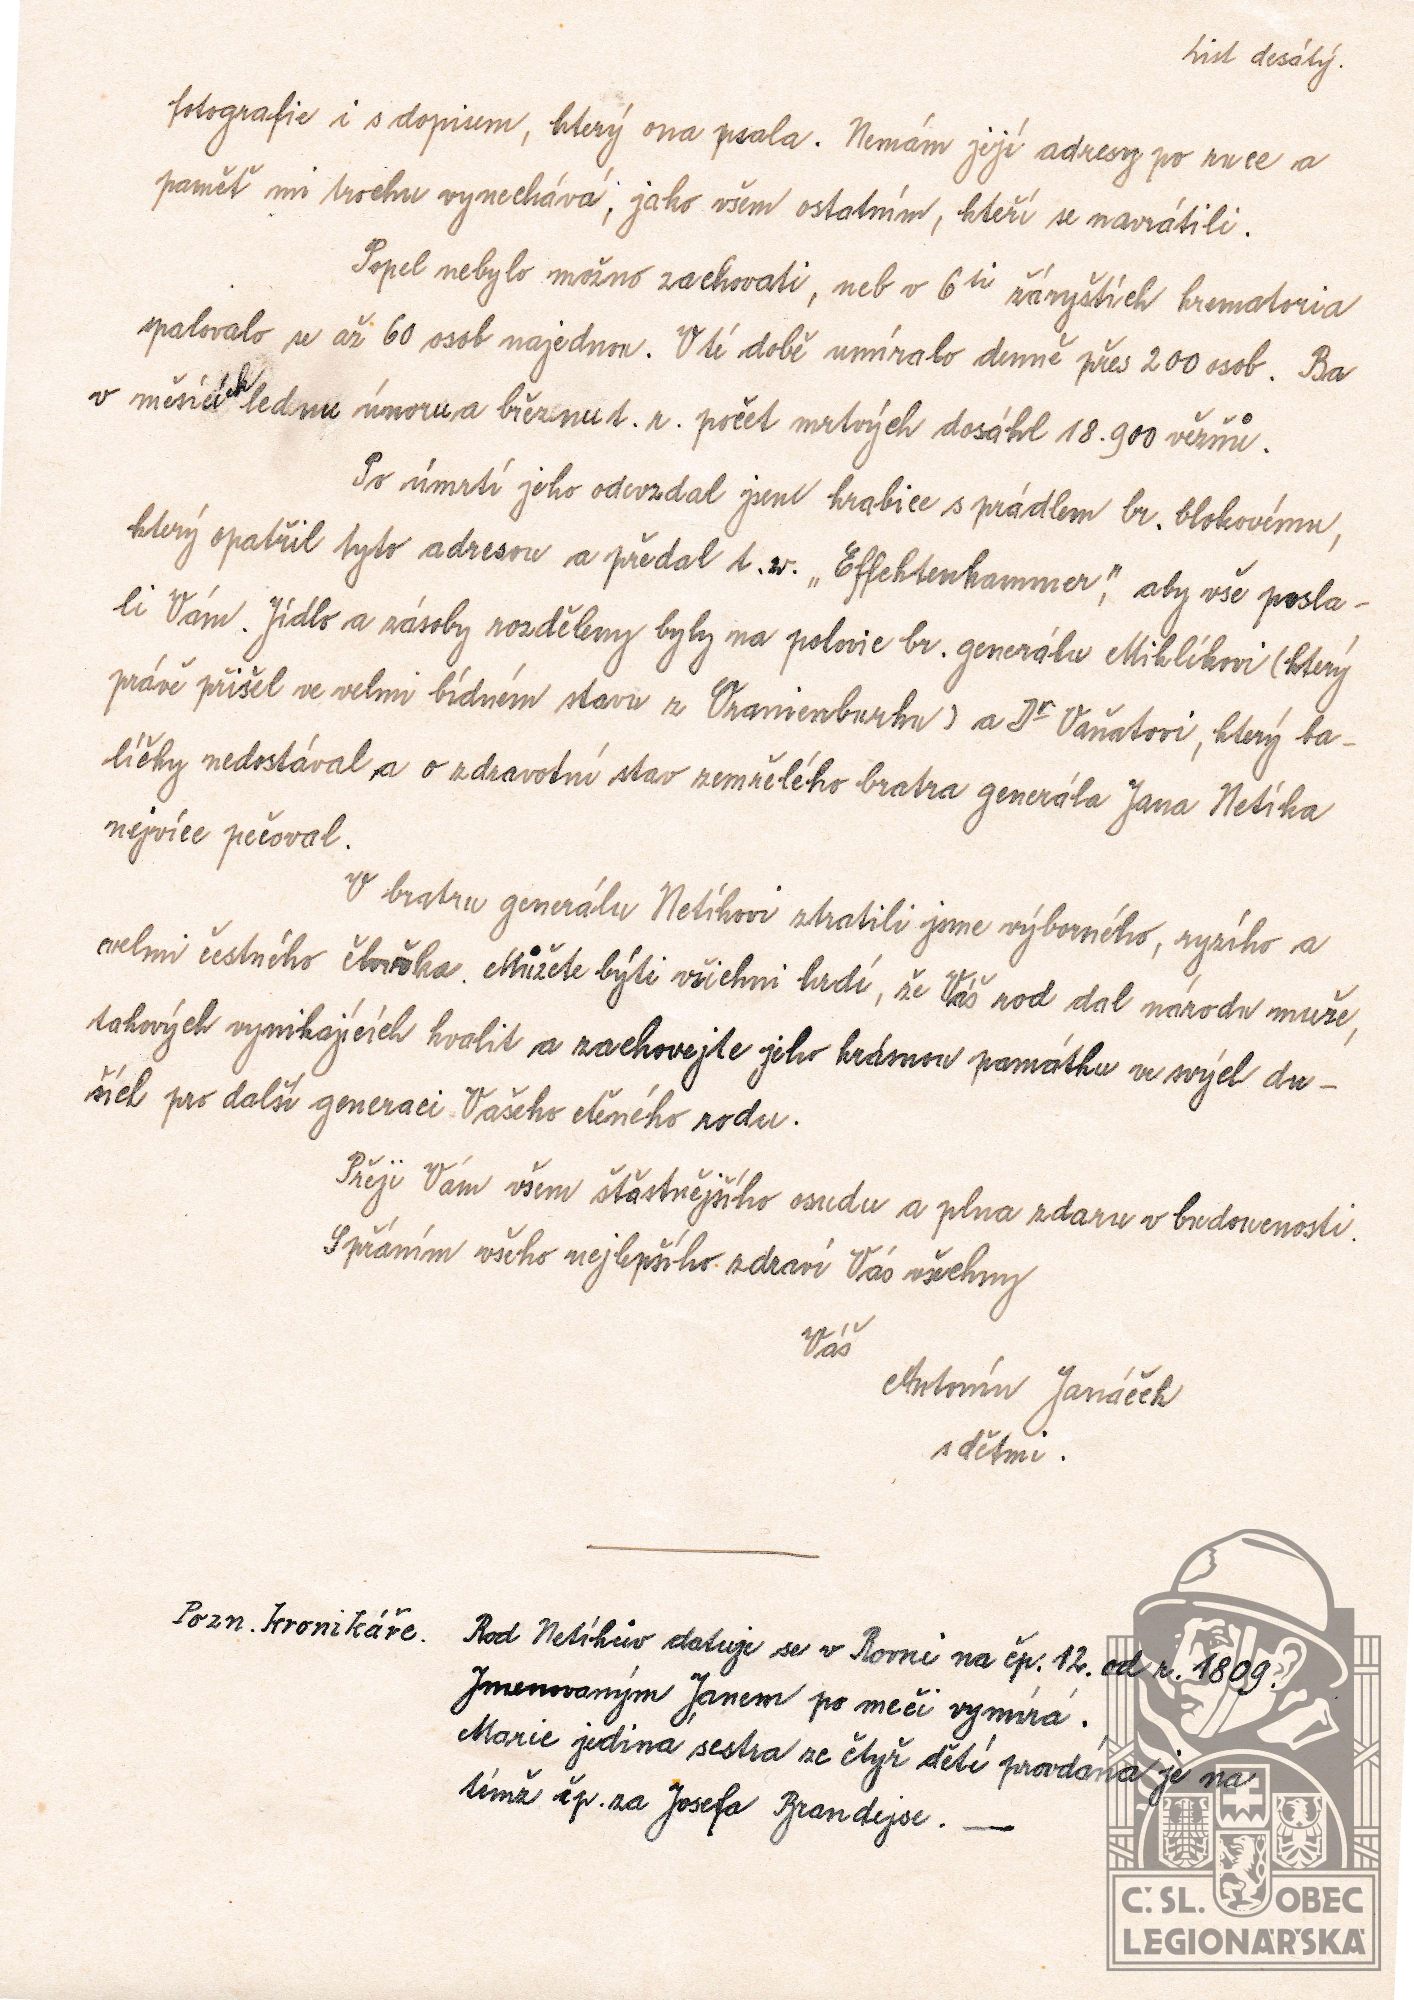 List desátý.
fotografie i s dopisem, který ona psala. Nemám její adresy po ruce a
paměť mi trochu vynechává, jako všem ostatním, kteří se navrátili.
Popel nebylo možno zachovati, neb v 6ti žároštích krematoria
spalovalo se až 60 osob najednou. V té době umíralo denně přes 200 osob. Ba
v měsících lednu únoru a březnu t. r. počet mrtvých dosáhl 18.900 věžňů.
Po úmrtí jeho odevzdal jsem krabice s prádlem br. blokovému,
který opatřil tyto adresou a předal t. zv. „Effektenkammer", aby vše posla-
li Vám. Jídlo a zásoby rozděleny byly na polovic br. generálu Miklíkovi (který
právě přišel ve velmi bídném stavu z Oranienburku) a Dr Vaňatovi, který ba-
líčky nedostával a o zdravotní stav zemřelého bratra generála Jana Netíka
nejvíce pečoval.
V bratru generálu Netíkovi ztratili jsme výborného, ryzího a
velmi čestného člověka. Můžete býti všichni hrdí, že Váš rod dal národu muže,
takových vynikajících kvalit a zachovejte jeho krásnou památku ve svých du-
ších pro další generaci Vašeho ctěného rodu.
Přeji Vám všem šťastnějšího osudu a plna zdaru v budoucnosti.
S přáním všeho nejlepšího zdraví Vás všechny
Váš
Antonín Janáček
s dětmi.
Pozn. kronikáře. Rod Netíkův datuje se v Rovni na čp. 12. od r. 1809.
Jmenovaným Janem po meči vymírá.
Marie jediná sestra ze čtyř dětí provdána je na
témž čp. za Josefa Brandejse. —
Č. SL. OBEC
LEGIONÁŘSKÁ